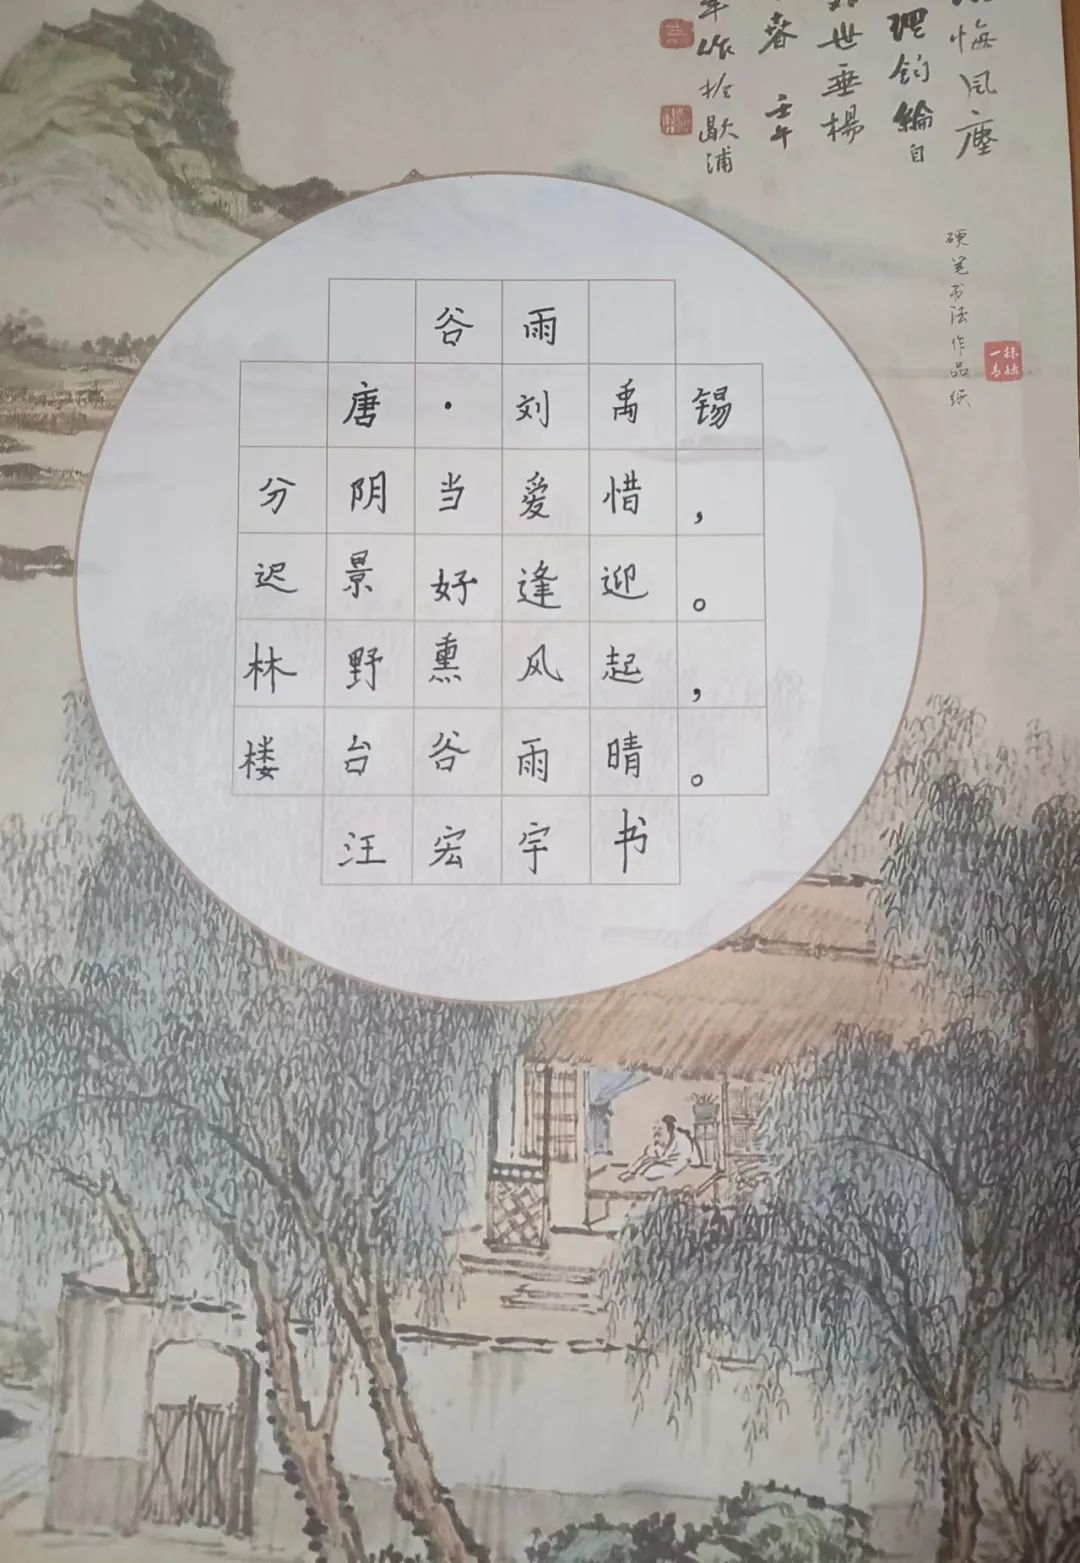 谷雨
唐·刘禹锡
分阴当爱惜，
迟景好逢迎。
林野熏风起，
楼台谷雨晴。
汪宏宇书
悔风尘
理钓纶自
世垂杨
春 壬午
年作于歇浦
硬笔书法作品纸